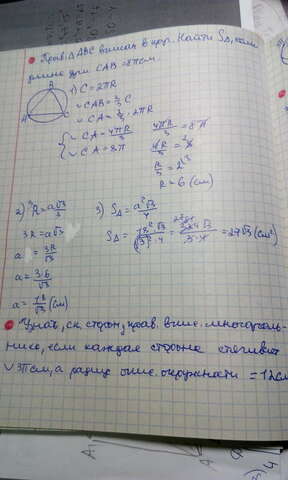 Прав. △ABC вписан в круг. Найти S△, если
длина дуги CAB = 8π см.
B
A
C
1) C = 2πR
◡CAB = 2/3 C
◡CA = 2/3 · 2πR
◡CA = 4πR/3
◡CA = 8π
4πR/3 = 8π
4R/3 = 8
R/3 = 2
R = 6 (см)
2) R = a√3/3
3R = a√3
a = 3R/√3
a = 3·6/√3
a = 18/√3 (см)
3) S△ = a²√3/4
= 27√3 (см²)
Узнать, ск. сторон у прав. впис. многоуголь-
нике, если каждая сторона стягивает
◡3π см, а радиус опис. окружности = 12 см